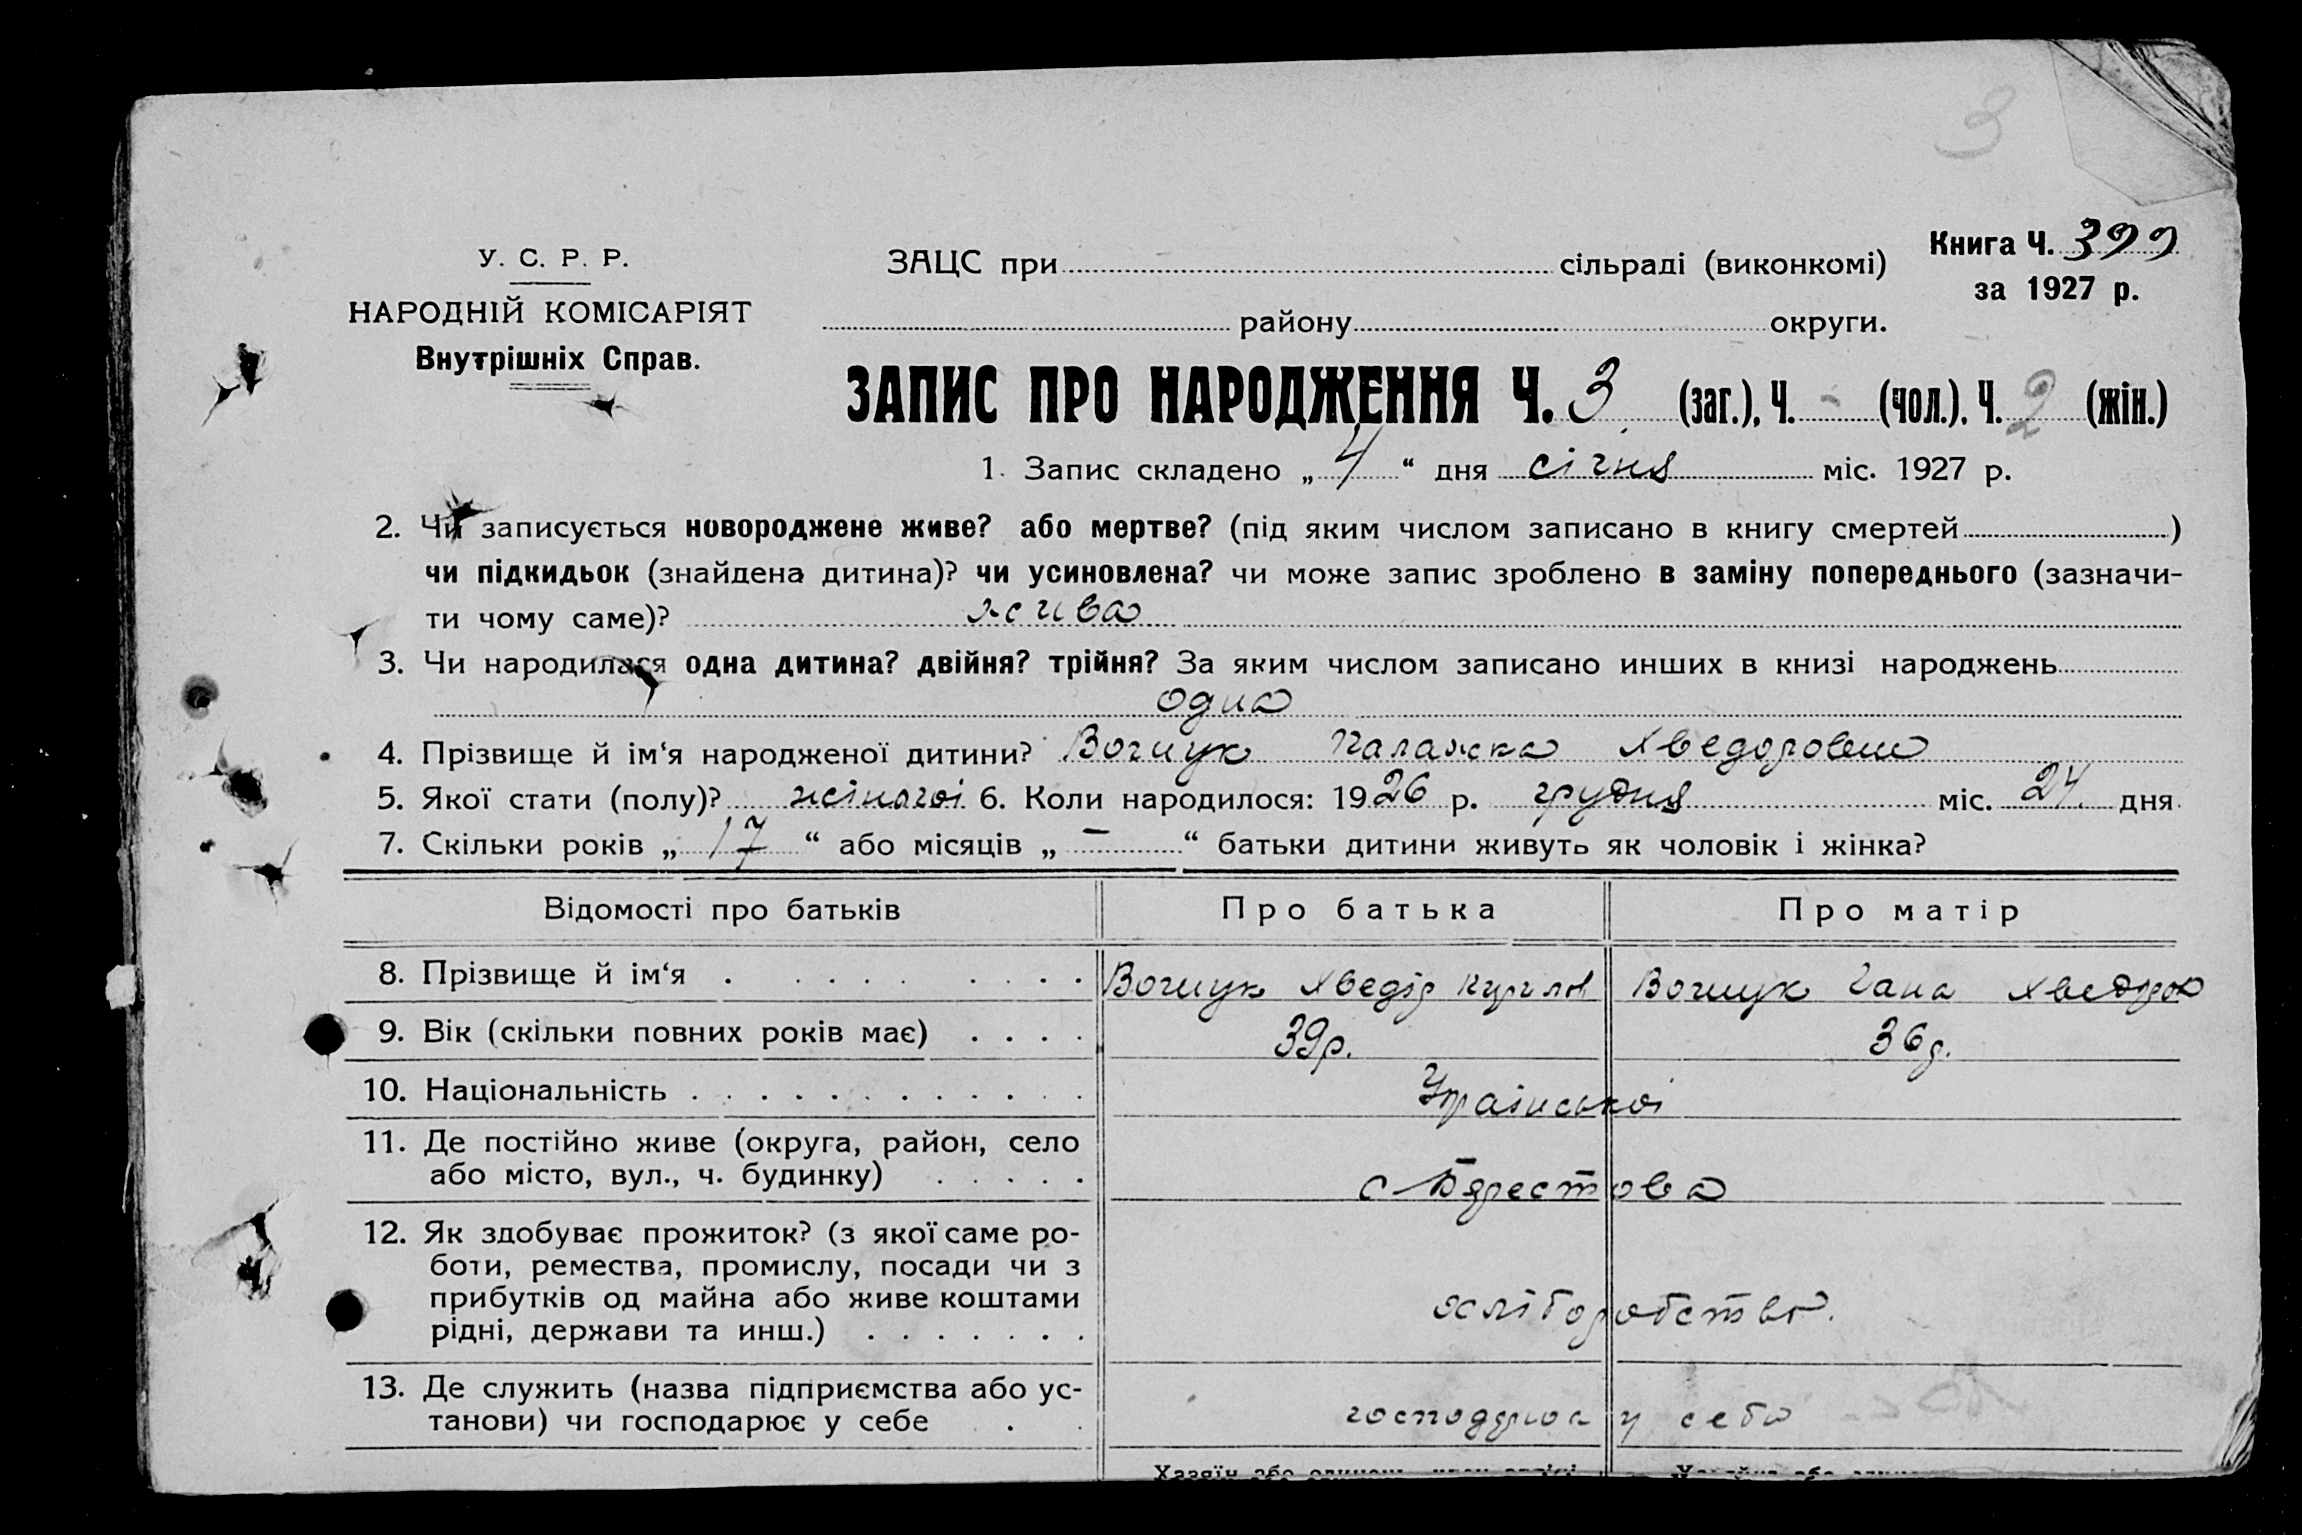 3
У. С. Р. Р.
НАРОДНІЙ КОМІСАРІЯТ
Внутрішніх Справ.
ЗАЦС при сільраді (виконкомі)
району округи.
Книга Ч. 399
за 1927 р.
ЗАПИС ПРО НАРОДЖЕННЯ Ч. 3 (заг.), Ч. - (чол.), Ч. 2 (жін.)
1. Запис складено „ 4 “ дня січня міс. 1927 р.
2. Чи записується новороджене живе? або мертве? (під яким числом записано в книгу смертей )
чи підкидьок (знайдена дитина)? чи усиновлена? чи може запис зроблено в заміну попереднього (зазначи-
ти чому саме)? жива
3. Чи народилася одна дитина? двійня? трійня? За яким числом записано инших в книзі народжень
одна
4. Прізвище й ім‘я народженої дитини? Палажка Хведоровна
5. Якої стати (полу)? жіночої 6. Коли народилося: 1926 р. грудня міс. 24. дня
7. Скільки років „ 17 “ або місяців „ — “ батьки дитини живуть як чоловік і жінка?
Відомості про батьків Про батька Про матір
8. Прізвище й ім‘я Хведір Гана
9. Вік (скільки повних років має) 39р. 36р.
10. Національність Української
11. Де постійно живе (округа, район, село
або місто, вул., ч. будинку) с Берестова
12. Як здобуває прожиток? (з якої саме ро-
боти, ремества, промислу, посади чи з
прибутків од майна або живе коштами
рідні, держави та инш.) хліборобство.
13. Де служить (назва підприємства або ус-
танови) чи господарює у себе у себе